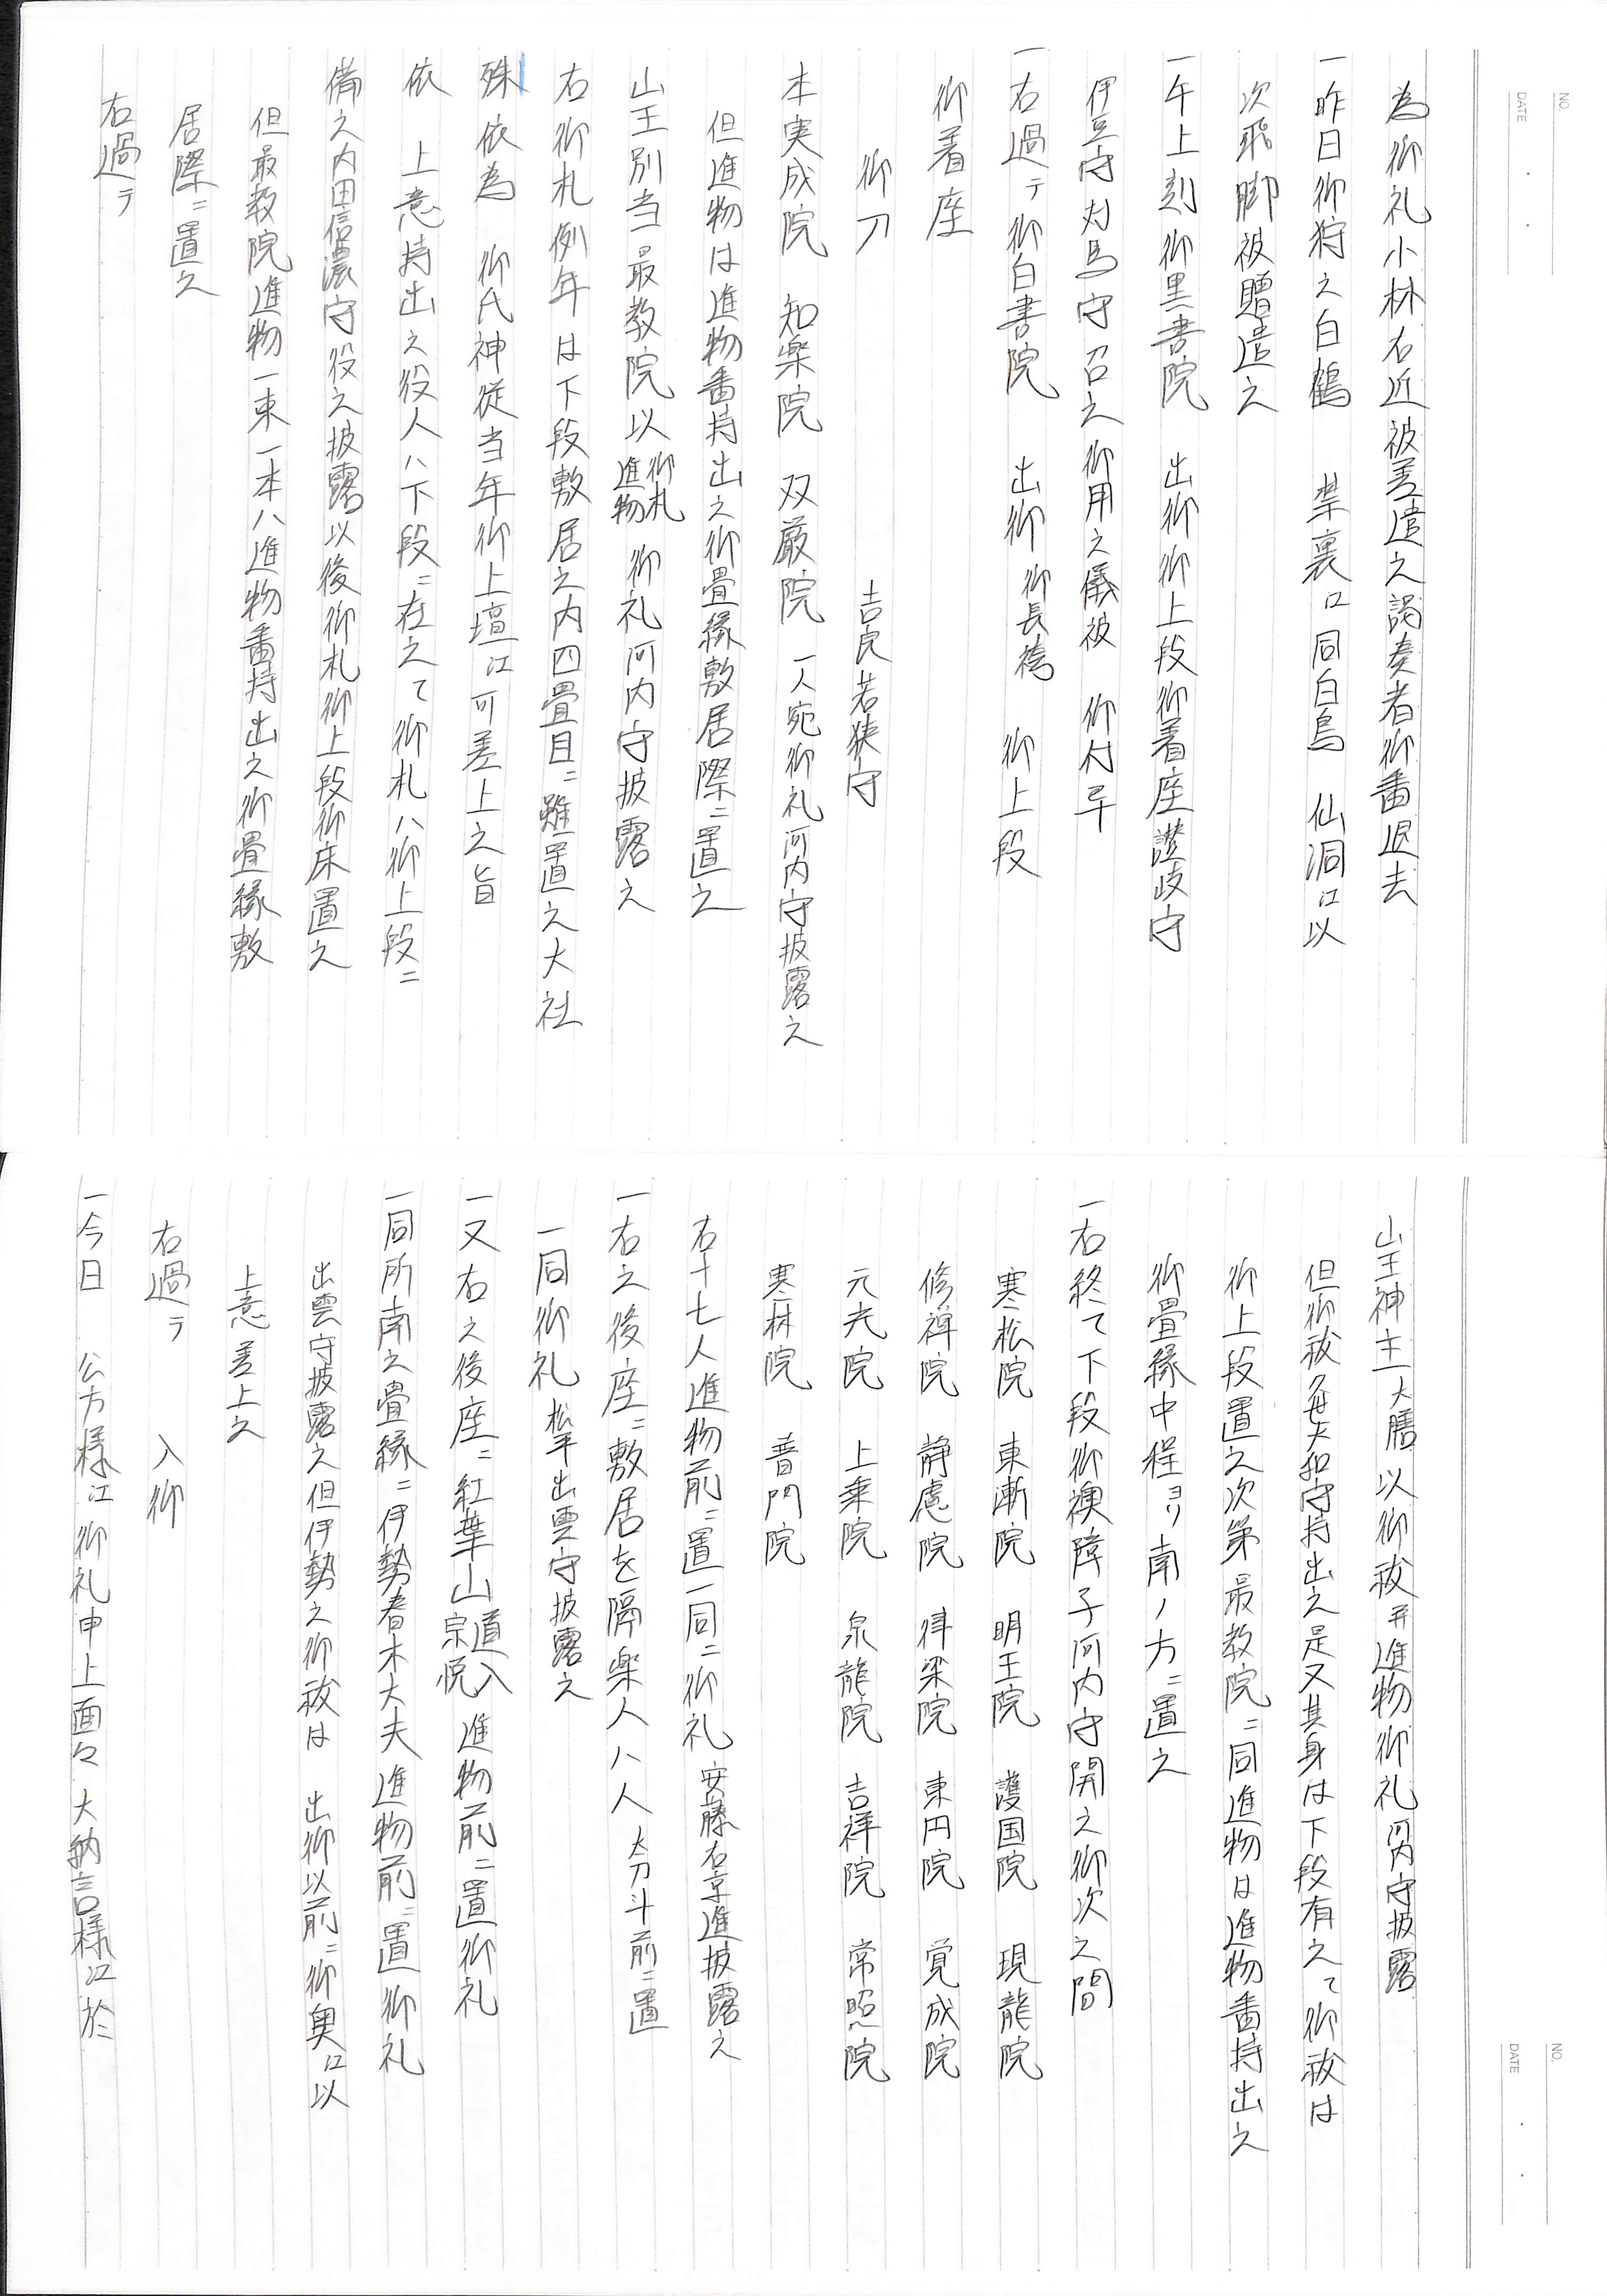 NO.
DATE
為御礼小林右近被差遣之謁奏者御番退去
一昨日御狩之白鶴　禁裏江同白鳥　仙洞江以
次飛脚被贈遣之
一午上刻御黒書院　出御御上段御着座讃岐守
伊豆守対馬守召之御用之儀被　仰付畢
一右過テ御白書院　出御　御長袴　御上段
御着座
御刀　吉良若狭守
本実成院　知楽院　双厳院　一人宛御礼河内守披露之
但進物は進物番持出之御畳縁敷居際ニ置之
山王別当最教院以御札進物　御礼河内守披露之
右御札例年は下段敷居之内四畳目ニ雖置之大社
殊依為　御氏神従当年御上壇江可差上之旨
依　上意持出之役人ハ下段ニ在之て御札ハ御上段ニ
備之内田信濃守役之披露以後御札御上段御床置之
但最教院進物一束一本ハ進物番持出之御畳縁敷
居際ニ置之
右過テ
NO.
DATE
山王神主大膳以御祓并進物御礼河内守披露
但御祓毎大和守持出之是又其身は下段有之て御祓は
御上段置之次第最教院ニ同進物は進物番持出之
御畳縁中程ヨリ南ノ方ニ置之
一右終て下段御襖障子河内守開之御次之間
寒松院　東漸院　明王院　護国院　現龍院
修禅院　静慮院　律梁院　東円院　覚成院
元光院　上乗院　泉龍院　吉祥院　常照院
寒林院　普門院
右十七人進物前ニ置一同ニ御礼　安藤右京進披露之
一右之後座ニ敷居を隔楽人八人　太刀斗前ニ置
一同御礼　松平出雲守披露之
一又右之後座ニ紅葉山道入宗悦　進物前ニ置御礼
一同所南之畳縁ニ伊勢春木大夫進物前ニ置御礼
出雲守披露之但伊勢之御祓は　出御以前ニ御奥江以
上意差上之
右過テ　入御
一今日　公方様江御礼申上面々大納言様江於